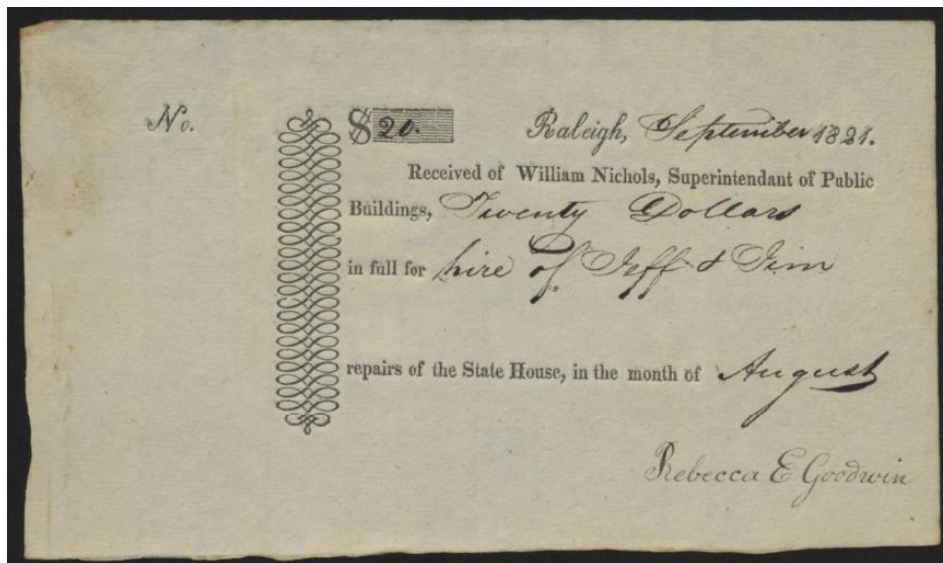 No.
$20. Raleigh, September 1821.
Received of William Nichols, Superintendant of Public
Buildings, Twenty Dollars
in full for hire of Jeff & Jim
repairs of the State House, in the month of August
Rebecca E Goodwin